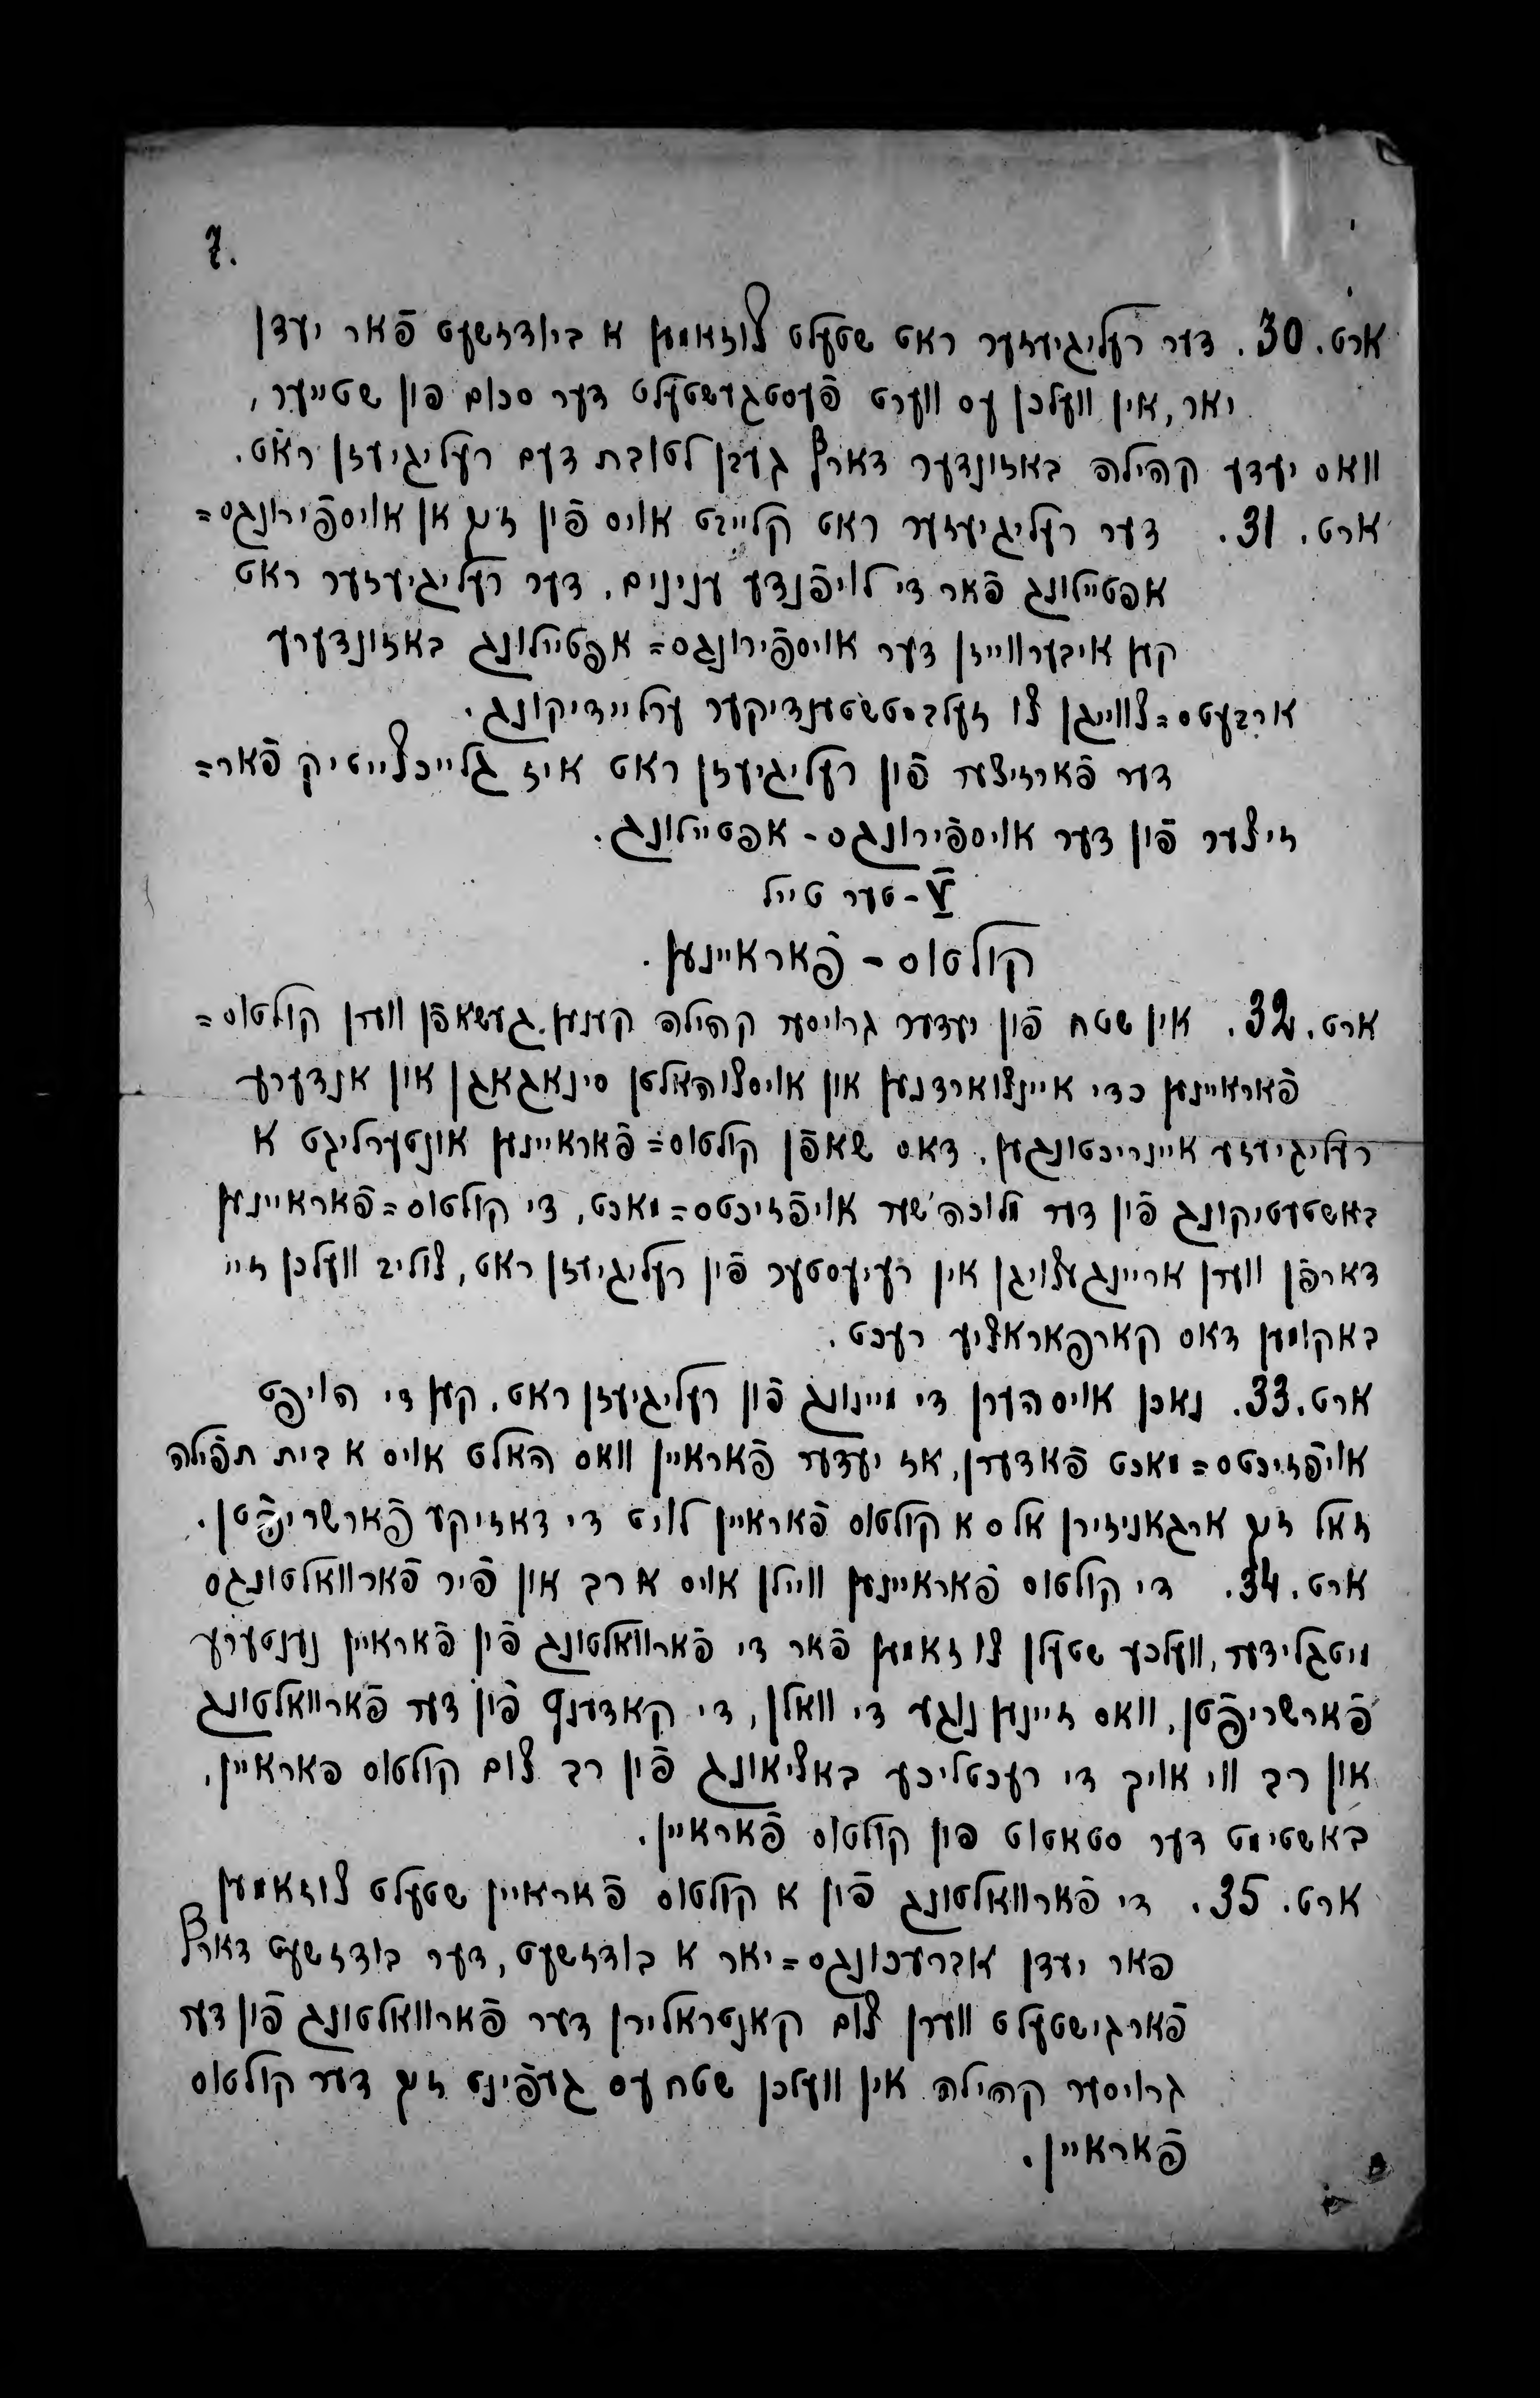 7.
ארט. 30. דער רעליגיעזער ראט שטעלט צוזאמען א בודזשעט פֿאר יעדן
יאר, אין וועלכן עס ווערט פֿעסטגעשטעלט דער סכום פון שטייער,
וואס יעדע קהילה באזונדער דארף געבן לטובת דעם רעליגיעזן ראט.
ארט. 31. דער רעליגיעזער ראט קלייבט אויס פֿון זיך אן אויספֿירונגס=
אפטיילונג פֿאר די לויפֿנדע ענינים. דער רעליגיעזער ראט
קען איבערווייזן דער אויספֿירונגס= אפטיילונג באזונדערע
ארבעטס=צווייגן צו זעלבסטשטענדיקער ערליידיקונג.
דער פֿארזיצער פֿון רעליגיעזן ראט איז גלייכצייטיק פֿאר=
זיצער פֿון דער אויספֿירונגס - אפטיילונג.
V - טער טייל
קולטוס - פֿאראיינען.
ארט. 32. אין שטח פֿון יעדער גרויסער קהילה קענען געשאפֿן ווערן קולטוס=
פֿאראיינען כדי איינצוארדנען און אויסצוהאלטן סינאגאגן און אנדערע
רעליגיעזע איינריכטונגען. דאס שאפֿן קולטוס= פֿאראיינען אונטערליגט א
באשטעטיקונג פֿון דער מלוכה'שער אויפֿזיכטס=מאכט, די קולטוס=פֿאראיינען
דארפֿן ווערן אריינגעצויגן אין רעיעסטער פֿין רעליגיעזן ראט, צוליב וועלכן זיי
באקומען דאס קארפאראציע רעכט.
ארט. 33. נאכן אויסהערן די מיינונג פֿון רעליגיעזן ראט, קען די הויפט
אויפֿזיכטס=מאכט פֿאדערן, אז יעדער פֿאראיין וואס האלט אויס א בית תפֿילה
זאל זיך ארגאניזירן אלס א קולטוס פֿאראיין לויט די דאזיקע פֿארשריפֿטן.
ארט. 34. די קולטוס פֿאראיינען וויילן אויס א רב און פֿיר פֿארוואלטונגס
מיטגלידער, וועלכע שטעלן צוזאמען פֿאר די פֿארוואלטונג פֿין פֿאראיין נענטערע
פֿארשריפֿטן, וואס זיינען נוגע די וואלן, די קאדענץ פֿון דער פֿארוואלטונג
און רב ווי אויך די רעכטליכע באציאונג פֿון רב צום קולטוס פאראיין,
באשטימט דער סטאטוט פון קולטוס פֿאראיין.
ארט. 35. די פֿארוואלטונג פֿון א קולטוס פֿאראיין שטעלט צוזאמען
פאר יעדן אברעכונגס=יאר א בודזשעט, דער בודזשעט דארף
פֿארגישטעלט ווערן צום קאנטראלירן דער פֿארוואלטונג פֿון דער
גרויסער קהילה אין וועלכן שטח עס געפֿינט זיך דער קולטוס
פֿאראיין.